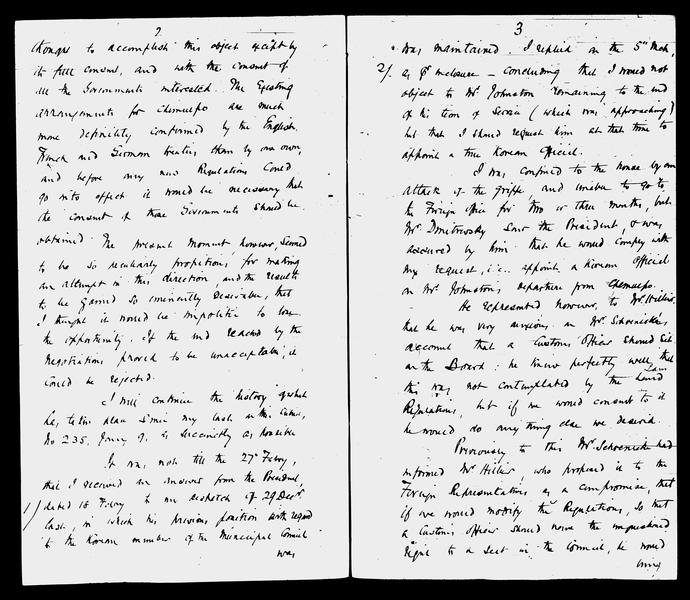 2
thought to accomplish this object except by
its full consent, and with the consent of
all the Governments interested. The Existing
arrangements for Chemulpo are much
more definitely confirmed by the English,
French and German treaties than by our own,
and before any new Regulations could
go into effect it would be necessary that
the consent of those Governments should be
obtained. The present moment however, seemed
to be so peculiarly propitious, for making
an attempt in this direction, and the results
to be gained so eminently desirable, that
I thought it would be impolitic to lose
the opportunity. If the end reached by the
negotiations proved to be unacceptable, it
could be rejected.
I will continue the history of what
has taken place since my last on this subject,
No 235, Jany 9, as succinctly as possible
It was not till the 27 Febry,
that I received an answer from the President,
1/ dated 16 Febry to my despatch of 29 Decr
last, in which his previous position with regard
to the Korean member of the Municipal Council
was
3
was maintained. I replied on the 5th Mch,
2/. as pr enclosure – concluding that I would not
object to Mr. Johnston remaining to the end
of his term of Service (which was approaching)
but that I should request him at that time to
appoint a true Korean Official.
I was confined to the house by an
attack of the grippe, and unable to go to
the Foreign Office for two or three months, but
Mr. Dmitrevsky saw the President, & was
assured by him that he would comply with
my request, i.e. appoint a Korean Official
on Mr. Johnston's departure from Chemulpo.
He represented however, to Mr. Hillier,
that he was very anxious on Mr. Schoenicke's
account that a Customs Officer should sit
on the Board: he knew perfectly well that
this was not contemplated by the Land
Regulations, but if we would consent to it
he would do any thing else we desired.
Previously to this Mr. Schoenicke had
informed Mr. Hillier, who proposed it to the
Foreign Representatives as a compromise, that
if we would modify the Regulations, so that
a Customs Officer should have the unquestioned
right to a seat in the Council, he would
bring